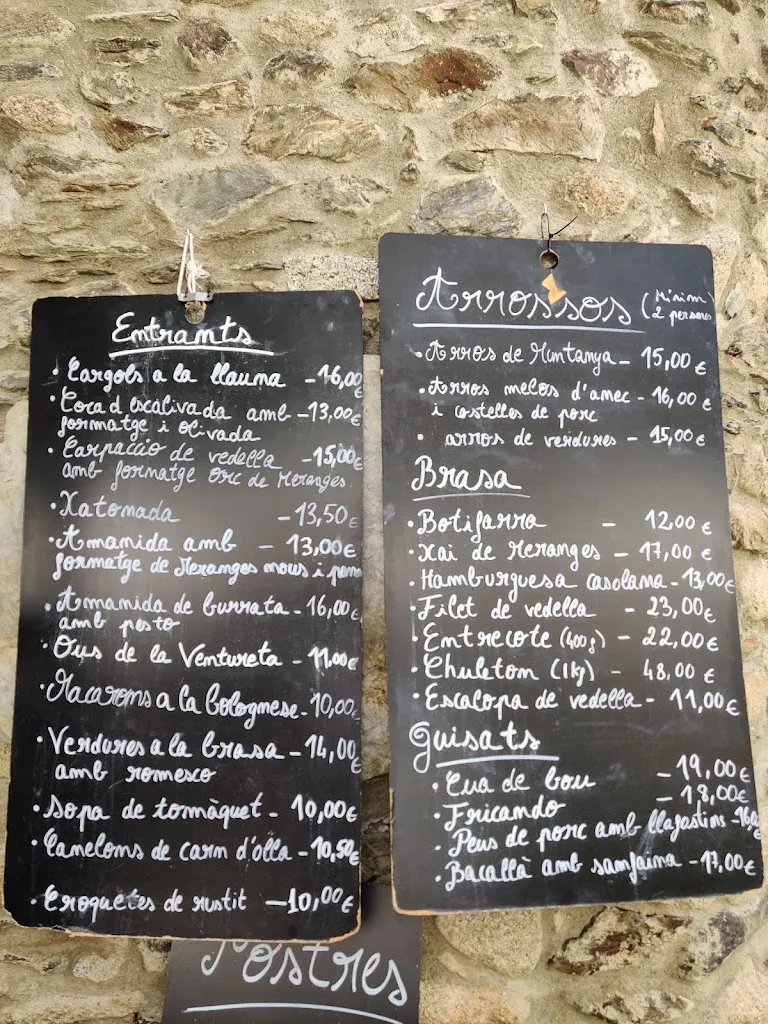 Entrants
· Cargols a la llauna - 16,00
· Coca d'escalivada amb - 13,00€
formatge i olivada
· Carpaccio de vedella - 15,00€
amb formatge Orc de Meranges
· Xatonada - 13,50€
· Amanida amb - 13,00€
formatge de Meranges nous i
· Amanida de burrata - 16,00€
amb pesto
· Ous de la Ventureta - 11,00€
· Macarrons a la bolognese - 10,00€
· Verdures a la brasa - 14,00
amb romesco
· Sopa de tomàquet - 10,00€
· Canelons de carn d'olla - 10,50€
· Croquetes de rustit - 10,00€
Arrossos (Mínim
2 persones
· Arros de Muntanya - 15,00€
· Arros melos d'anec - 16,00€
i costelles de porc
· arros de verdures - 15,00€
Brasa
· Botifarra - 12,00€
· Xai de Meranges - 17,00€
· Hamburguesa casolana - 13,00€
· Filet de vedella - 23,00€
· Entrecote (400g) - 22,00€
· Chuleton (1kg) - 48,00€
· Escalopa de vedella - 11,00€
Guisats
· Cua de bou - 19,00€
· Fricando - 18,00€
· Peus de porc amb llagostins -
· Bacallà amb samfaina - 17,00€
Postres